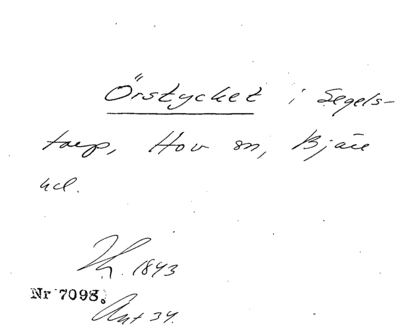 Örstycket i Segels-
torp, Hov sn, Bjäre
hd.
1843
Nr 7098.
Ant 34.